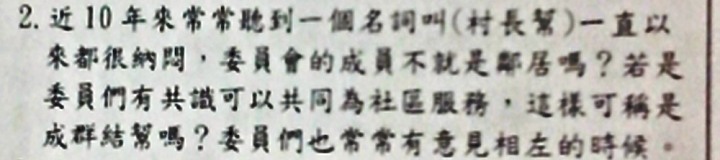 2.近10年來常常聽到一個名詞叫(村長幫)一直以
來都很納悶，委員會的成員不就是鄰居嗎？若是
委員們有共識可以共同為社區服務，這樣可稱是
成群結幫嗎？委員們也常常有意見相左的時候。